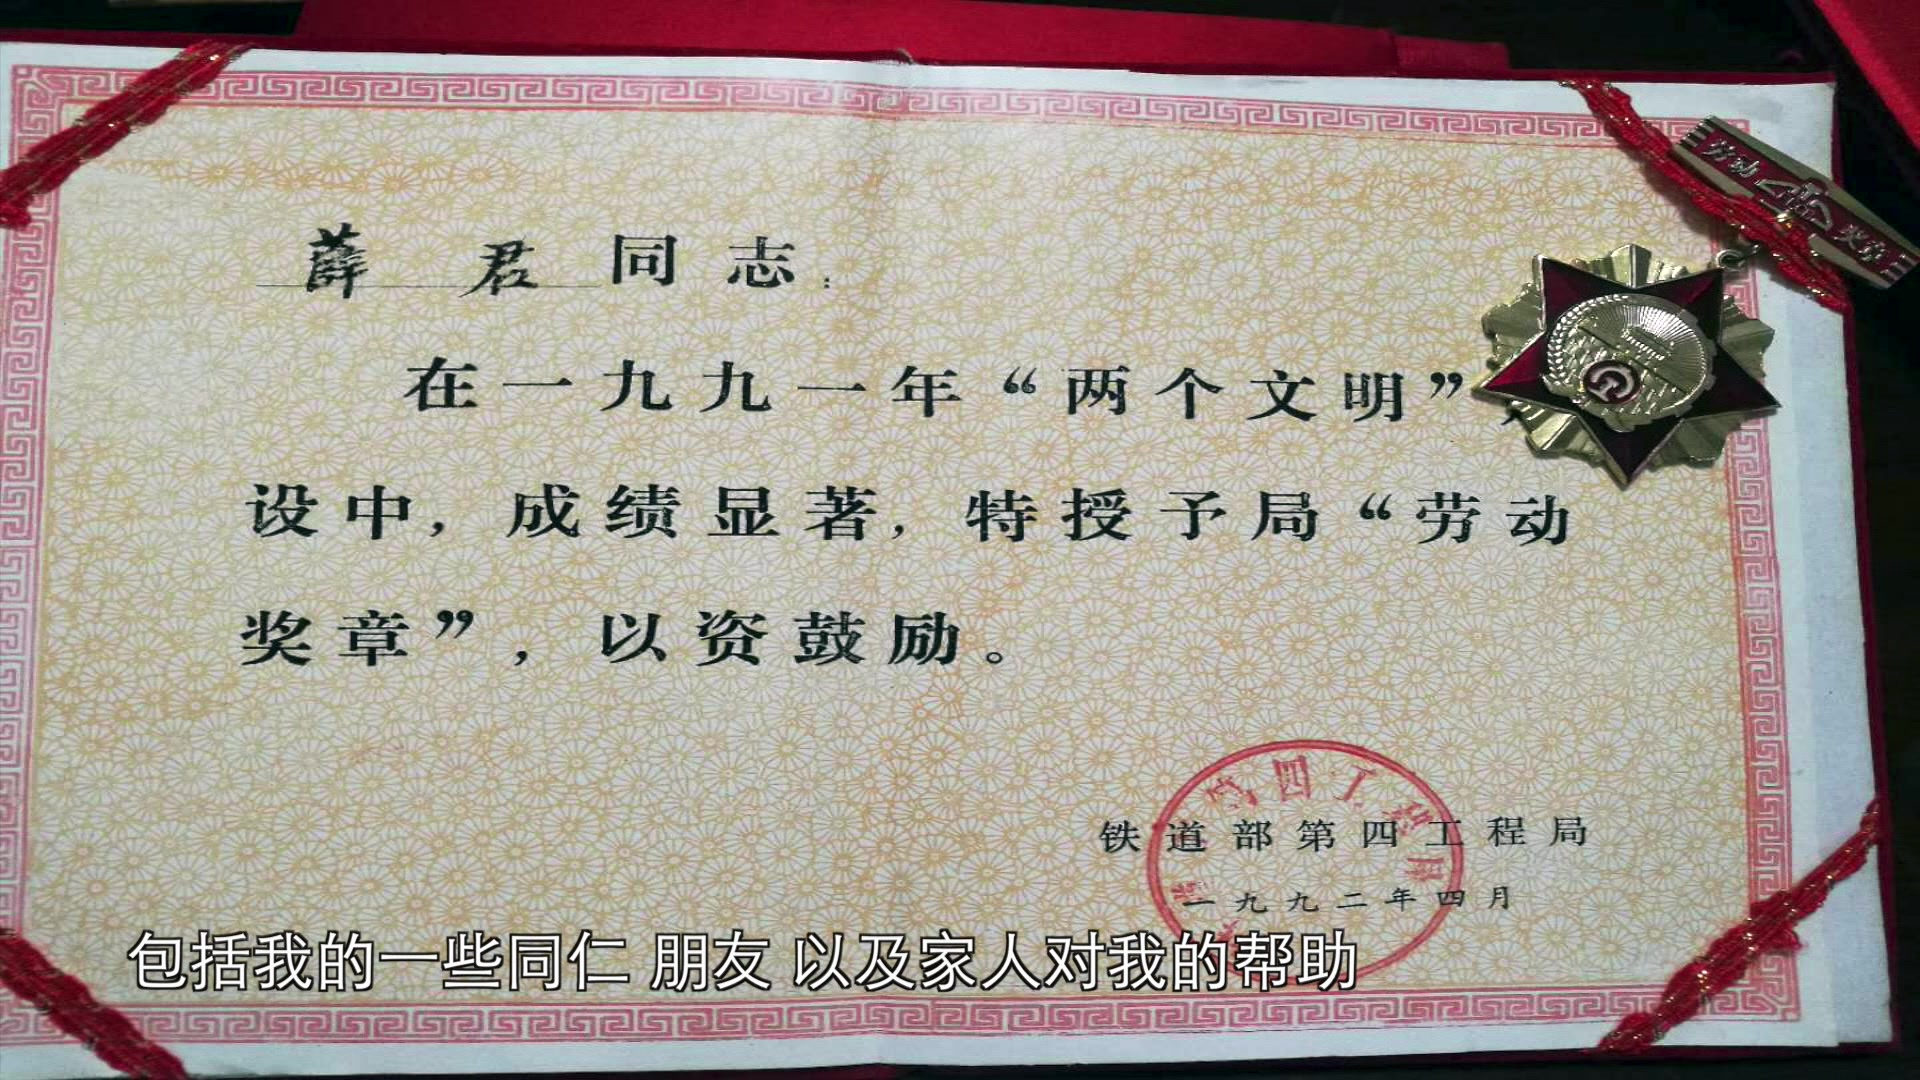 薛 君同志：
在一九九一年“两个文明”
设中，成绩显著，特授予局“劳动
奖章”，以资鼓励。
劳动
奖章
铁道部第四工程局
一九九二年四月
四工程局
包括我的一些同仁 朋友 以及家人对我的帮助